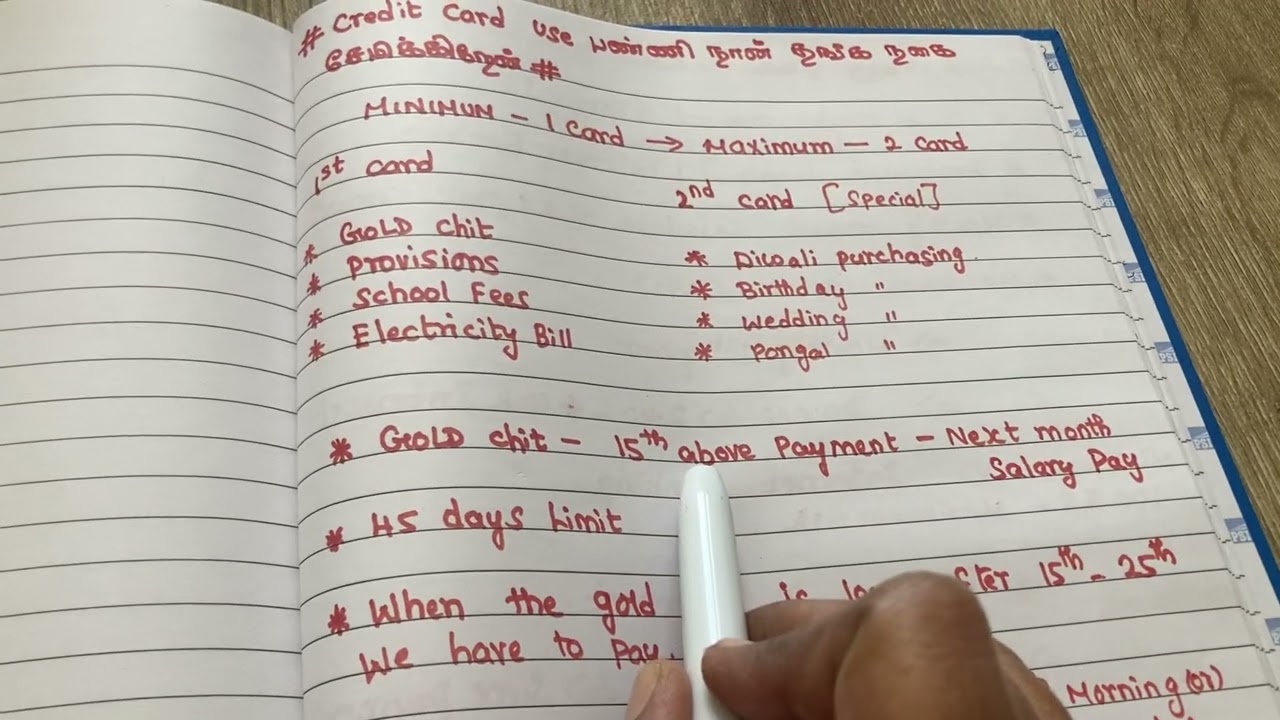 # Credit Card use பண்ணி நான் தங்க நகை
சேமிக்கிறேன் #
MINIMUM - 1 Card → Maximum - 2 Card
1st Card
2nd Card [Special]
* GOLD chit
* Provisions
* School Fees
* Electricity Bill
* Diwali purchasing
* Birthday "
* Wedding "
* Pongal "
* GOLD chit - 15th above Payment - Next month
Salary Pay
* 45 days Limit
* When the gold is 15th - 25th
We have to pay.
Morning (or)